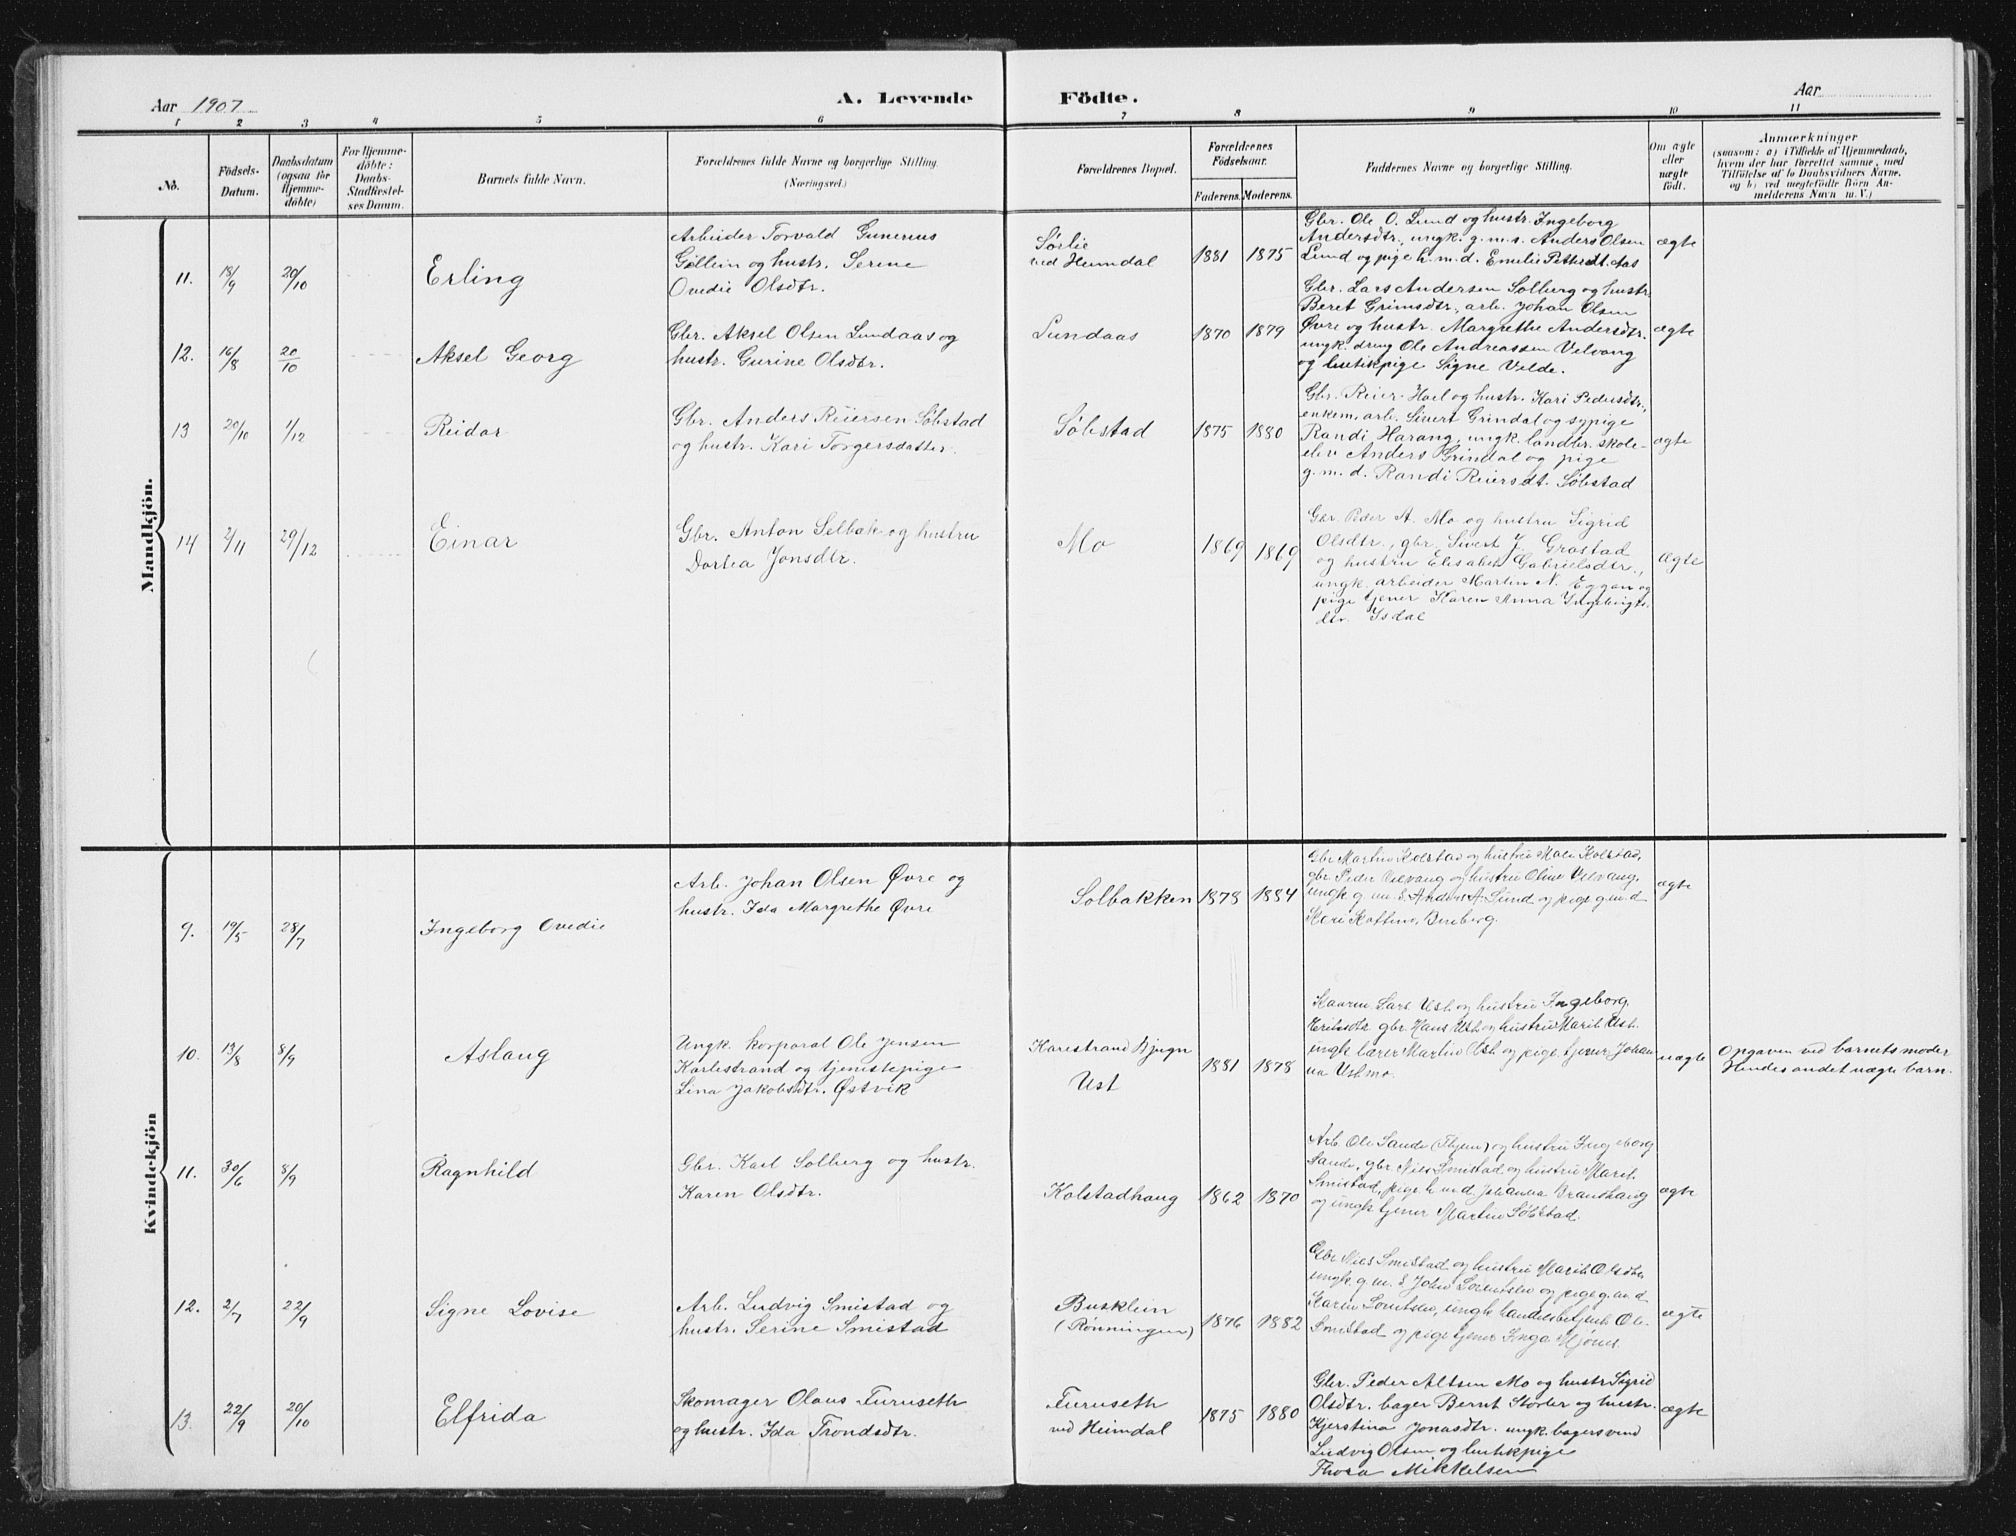 Aar 1907
A. Levende Födte.
Aar
1 2 3 4 5 6 7 8 9 10 11
No.
Födsels-
Datum.
Daabsdatum
(ogsaa for
Hjemme-
döbte)
For Hjemme-
döbte:
Daabs-
Stadfæstel-
ses Datum.
Barnets fulde Navn.
Forældrenes fulde Navne og borgerlige Stilling.
(Næringsvei.)
Forældrenes Bopæl.
Forældrenes
Födselsaar.
Faderens. Moderens.
Faddernes Navne og borgerlige Stilling.
Om ægte
eller
uægte
födt.
Anmærkninger
(saasom: a) i Tilfælde af Hjemmedaab,
hvem der har forrettet samme, med
Tilföielse af to Daabsvidners Navne,
og b) ved uegtefödte Börn An-
melderens Navn m. V.)
Mandkjön.
11. 18/9 20/10 Erling
Arbeider Torvald Gunerius
og hustr. Serine
Ovedie Olsdtr.
Sørlie
ved Heimdal
1881 1875
Gbr. Ole O. Lund og hustr. Ingeborg
Andersdtr., ungk. g.m.s. Anders Olsen
Lund og pige h.m.d. Emelie Aas
ægte
12. 16/8 20/10 Aksel Georg
Gbr. Aksel Olsen Lundaas og
hustr. Gurine Olsdtr.
Lundaas
1870 1879
Gbr. Lars Andersen Solberg og hustr.
Beret Grimsdtr., arb. Johan Olsen
Øvre og hustr. Margrethe Andersdtr.
ungk. dreng Ole Andreassen Velvang
og butikpige Signe Velde.
ægte
13 20/10 1/12 Reidar
Gbr. Anders Reiersen Søbstad
og hustr. Kari Torgersdatter.
Søbstad
1875 1880
Gbr. Reier Hoel og hustr. Kari Pedersdtr.,
enkem. arb. Sivert Grindal og sypige
Randi Harang, ungk. landbr. skole-
elev Anders Grindal og pige
g.m.d. Randi Reiersdt. Søbstad
ægte
14 2/11 29/12 Einar
Gbr. Anton Selbak og hustru
Dortea Jonsdtr.
Mo
1869 1869
Gbr. Peder A. Mo og hustru Sigrid
Olsdtr., gbr. Sivert J. Grostad
og hustru Elisabet Gabrielsdtr.,
ungk. arbeider Martin N. Eggan og
pige tjener Karen Anna Ingebrigts-
dtr. Isdal
ægte
Kvindekjön
9. 19/5 28/7 Ingeborg Ovedie
Arb. Johan Olsen Øvre og
hustr. Ida Margrethe Øvre
Solbakken
1878 1884
Gbr. Martin Kolstad og hustru Mali Kolstad,
gbr. Peder Velvang og hustru Oline Velvang,
ungk. g.m.s. Anders A. Lund og pige g.m.d.
ægte
10. 13/8 8/9 Aslaug
Ungk. korporal Ole Jensen
Karlestrand og tjenistepige
Lina Jakobsdtr. Østvik
Karestrand Bjugn
Ust
1881 1878
Lars Ust og hustru Ingeborg
Eriksdtr. gbr. Hans Ust og hustru Marit Ust.
ungk. lærer Martin Ust og pige tjener Johan-
na Ustmo.
uægte
Opgaven ved barnets moder
Hendes andet uægte barn.
11. 30/6 8/9 Ragnhild
Gbr. Karl Solberg og hustr.
Karen Olsdtr.
Kolstadhaug
1862 1870
Arb. Ole Sande og hustru Ingeborg
Sande, gbr. Nils Smistad og hustru Marit
Smistad, pige h.m.d. Johanna
og ungk. tjener Martin Søbstad.
ægte
12. 2/7 22/9 Signe Lovise
Arb. Ludvig Smistad og
hustr. Serine Smistad
Busklein
(Rønningen)
1876 1882
Gbr. Nils Smistad og hustru Marit Olsdtr,
ungk. g.m.s. John Lorentsen og pige g.m.d.
Karen Lorentsen, ungk. handelsbetjent Ole
Smistad og pige tjener Inga
ægte
13. 22/9 20/10 Elfrida
Skomager Olaus Furuseth
og hustr. Ida Trondsdtr.
Furuseth
ved Heimdal
1875 1880
Gbr. Peder Altsen Mo og hustr Sigrid
Olsdtr. bager Bernt Størler og hustr.
Kjerstina Jonasdtr. ungk. bagersvend
Ludvig Olsen og butikpige
Thora Mikkelsen
ægte